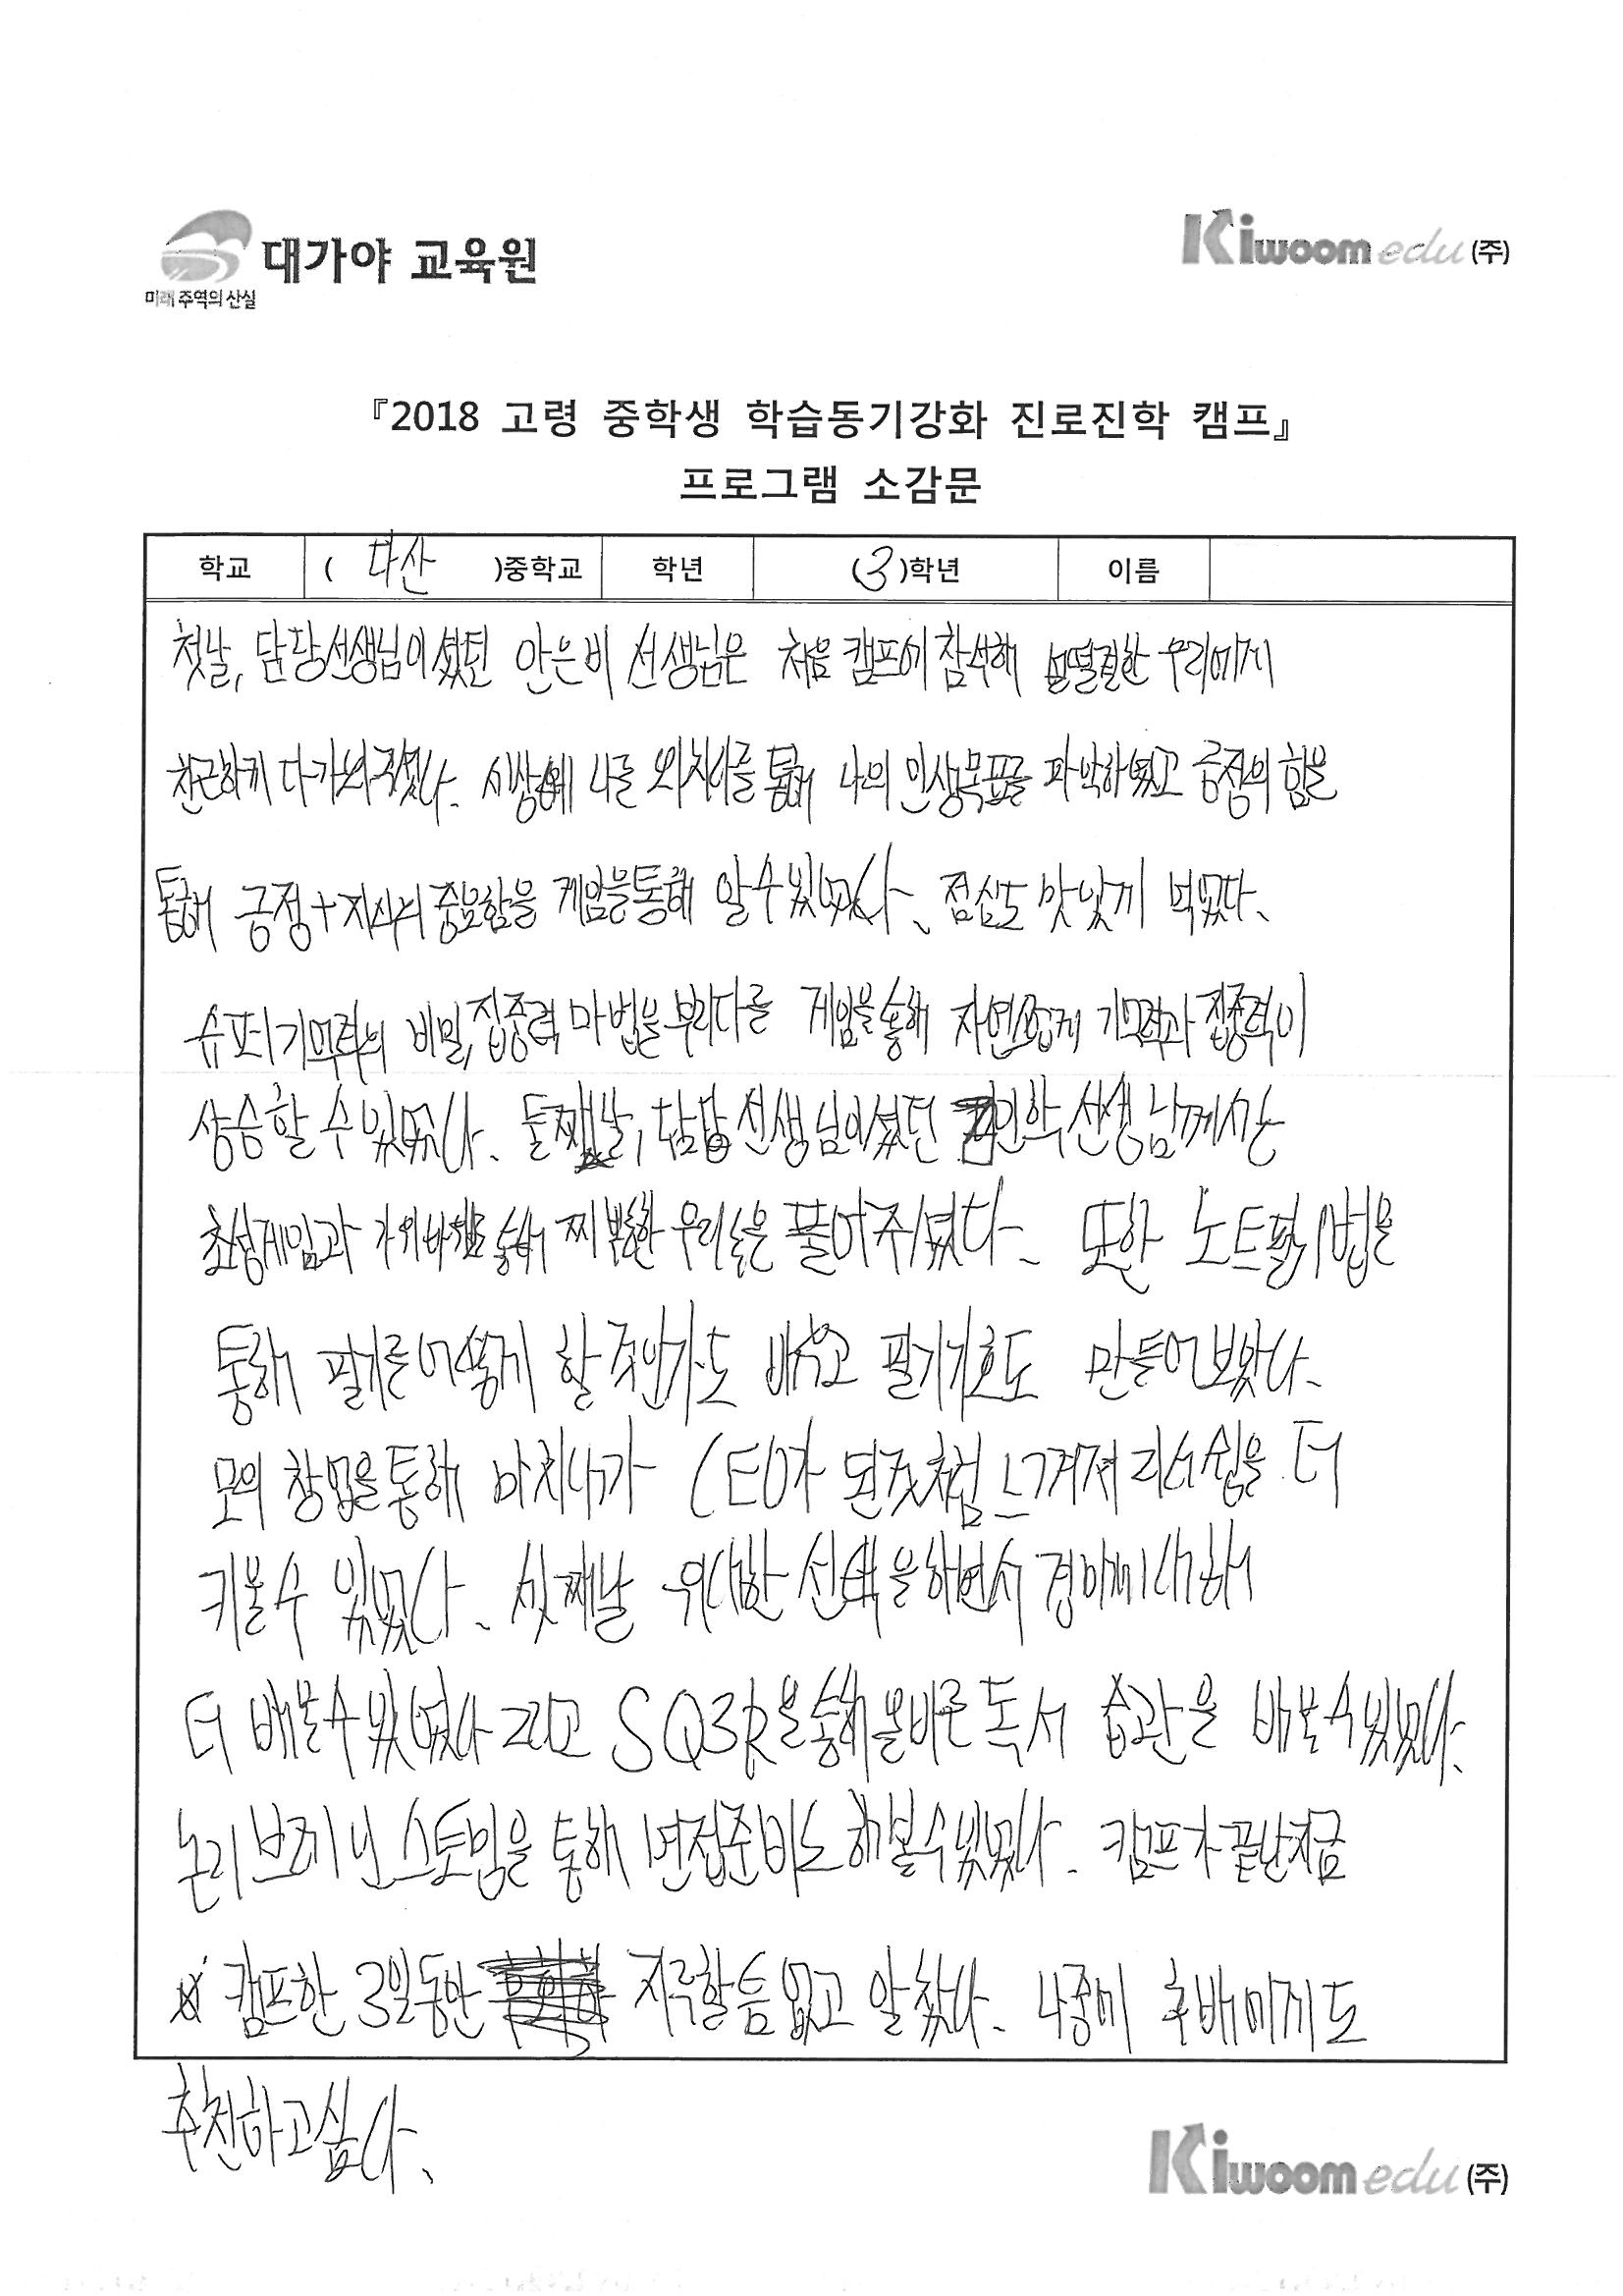 대가야 교육원
미래 주역의 산실
Kiwoom edu (주)
『2018 고령 중학생 학습동기강화 진로진학 캠프』
프로그램 소감문
학교 ( 다산 )중학교 학년 (3)학년 이름
첫날, 담당선생님이셨던 안은비 선생님은 처음 캠프에 참석해 떨떨한 우리에게
친근하게 다가와주셨다. 세상에 나를 외치다를 통해 나의 인생목표를 파악하였고 긍정의 힘을
통해 긍정+지식의 중요함을 게임을통해 알수있었다. 점심도 맛있게 먹었다.
슈퍼기억력의 비밀, 집중력 마법을부리다를 게임을통해 자연스럽게 기억력과 집중력이
상승할 수 있었다. 둘째날, 담당선생님이셨던 선생님께서는
초성게임과 가위바위보를 통해 찌뿌둥한 우리들을 풀어주셨다. 또한 노트필기법을
통해 필기를어떻게 할 것인가도 배우고 필기기호도 만들어보았다.
모의 창업을통해 마치내가 CEO가 된것처럼 느껴져 리더십을 더
키울수 있었다. 셋째날 위대한 선택을하면서 경매에대해서
더 배울수있었다 그리고 SQ3R을통해올바른독서 습관을 배울수있었다.
논리브레인스토밍을 통해 면접준비도해볼수있었다. 캠프가끝난지금
캠프한 3일동안 지루할틈없고 알찼다. 나중에 후배에게도
추천하고싶다.
Kiwoom edu (주)